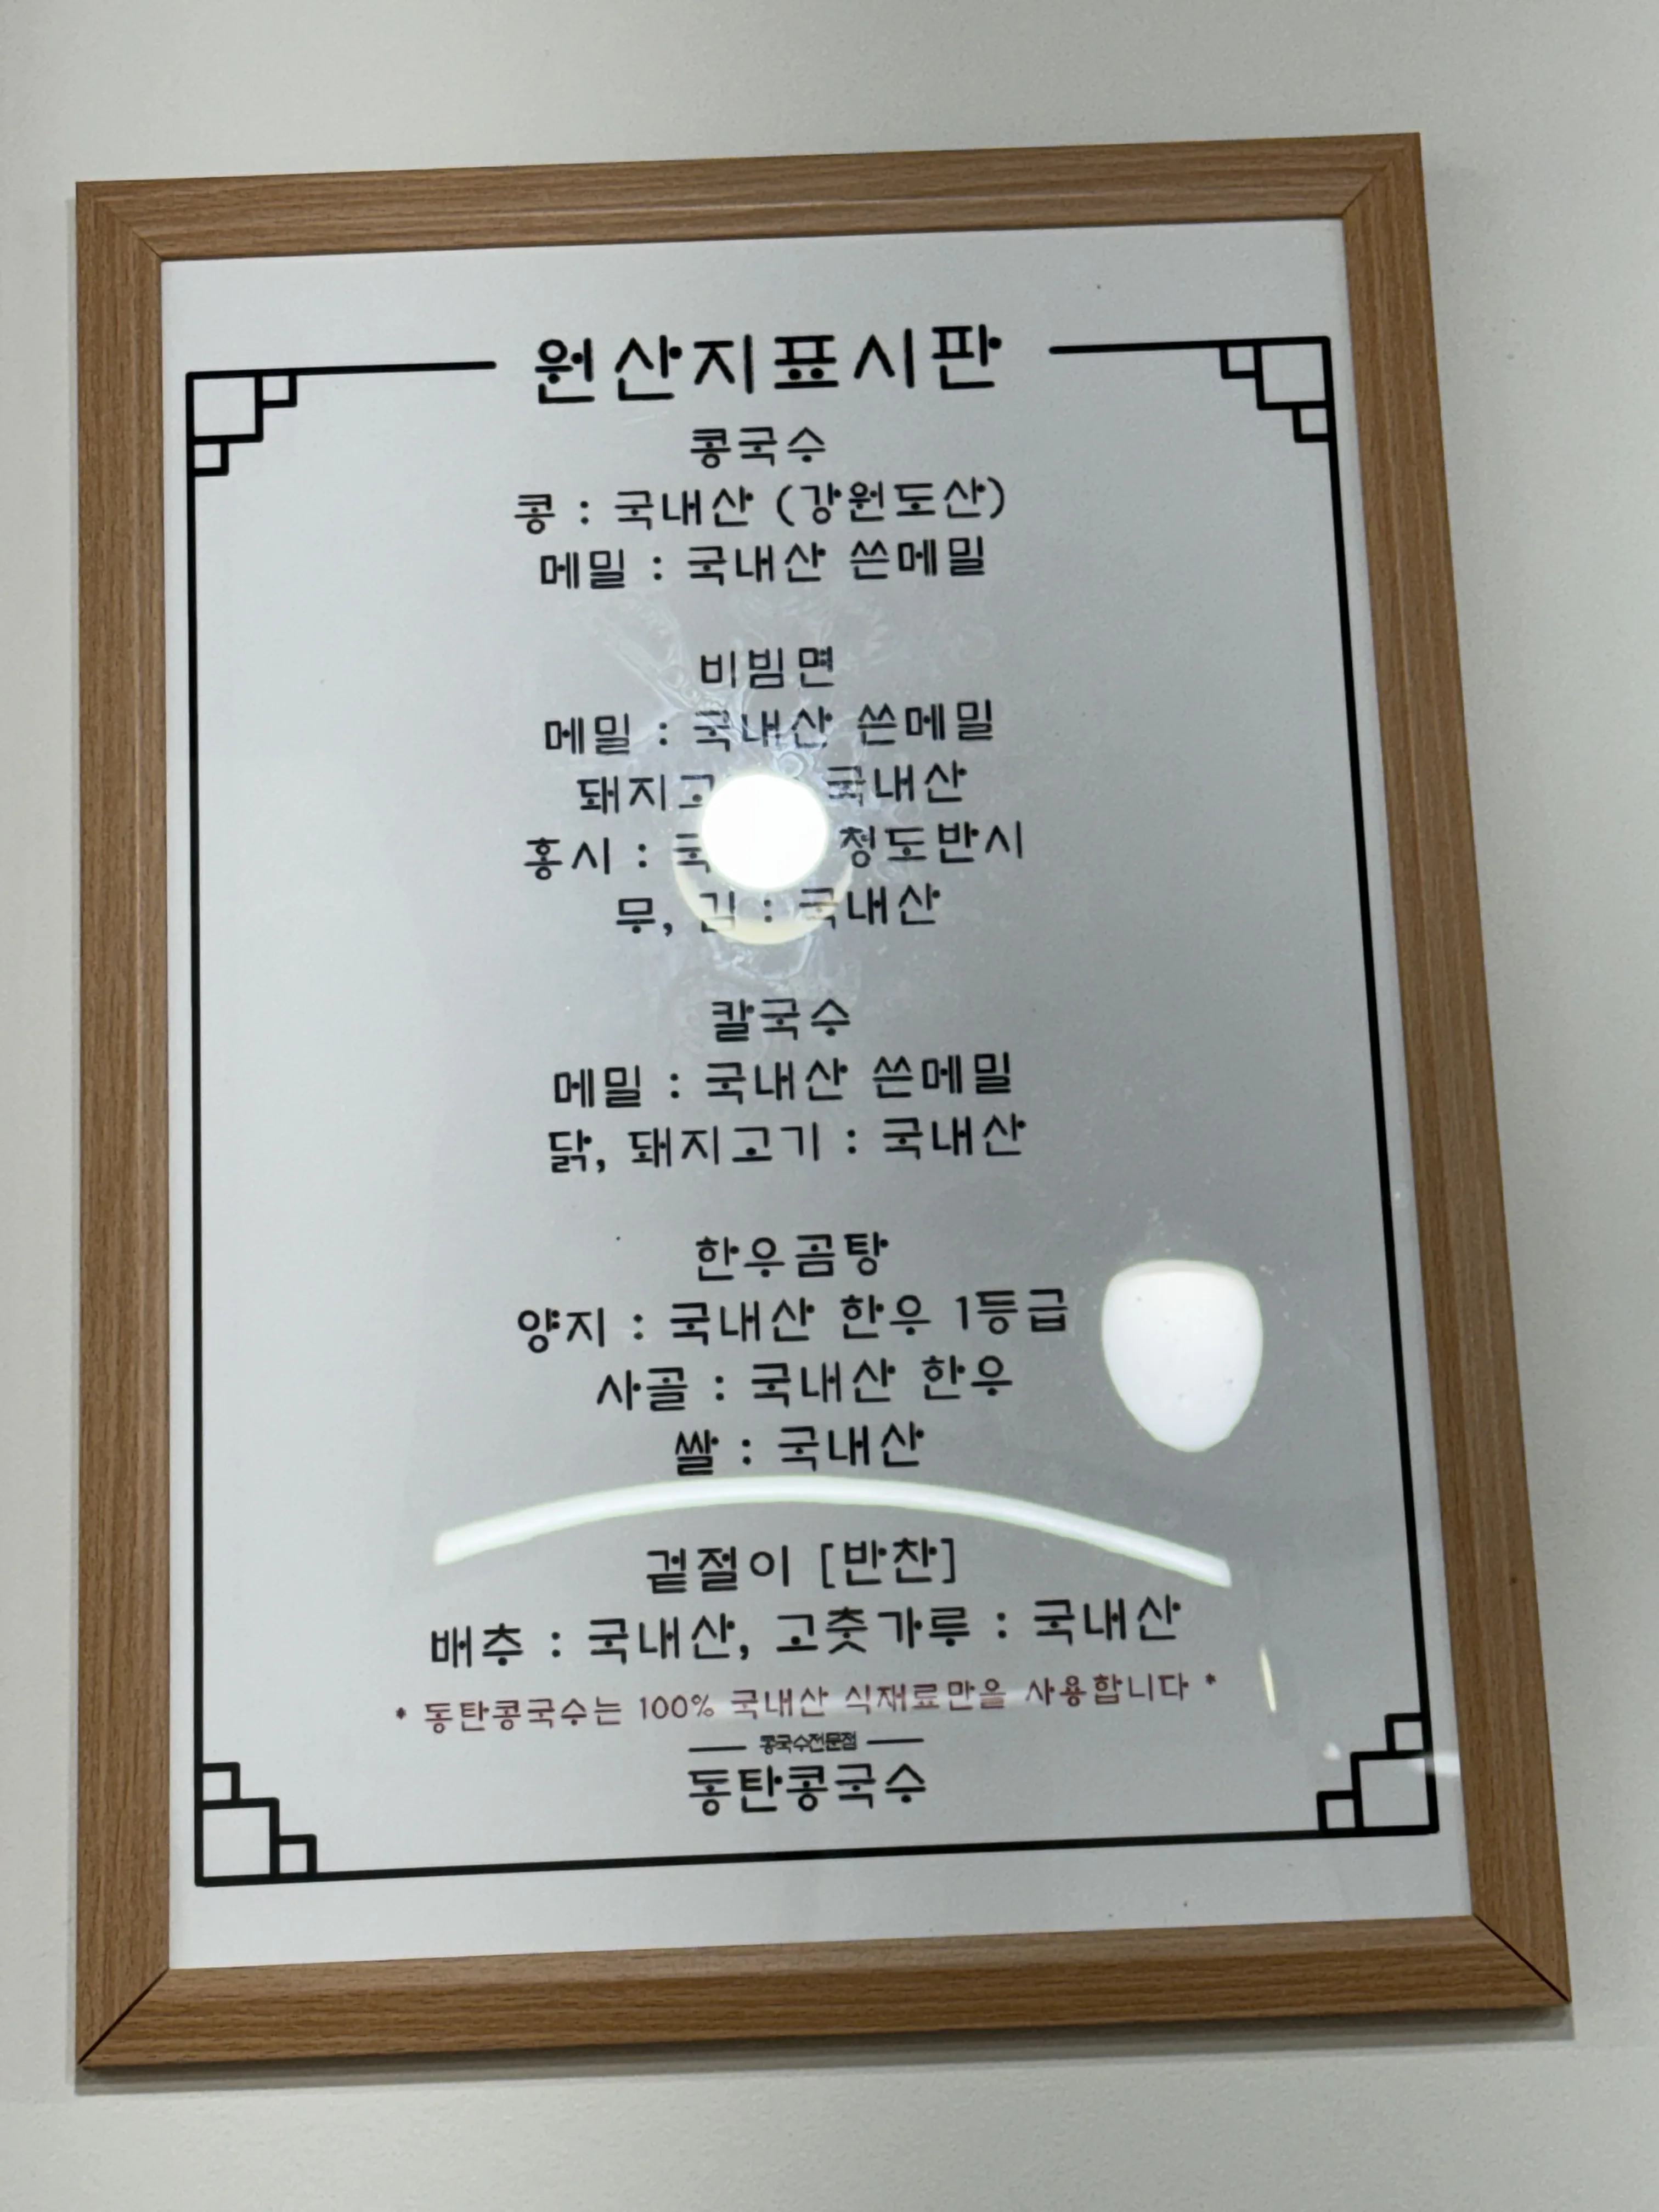 원산지표시판
콩국수
콩 : 국내산 (강원도산)
메밀 : 국내산 쓴메밀
비빔면
메밀 : 국내산 쓴메밀
국내산
홍시 : 청도반시
무, 김 : 국내산
칼국수
메밀 : 국내산 쓴메밀
닭, 돼지고기 : 국내산
한우곰탕
양지 : 국내산 한우 1등급
사골 : 국내산 한우
쌀 : 국내산
겉절이 [반찬]
배추 : 국내산, 고춧가루 : 국내산
* 동탄콩국수는 100% 국내산 식재료만을 사용합니다 *
콩국수전문점
동탄콩국수